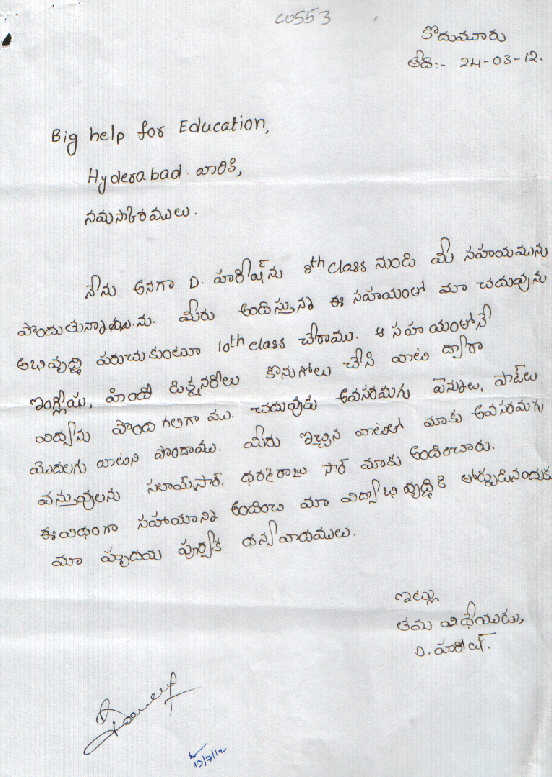 CU553
కొదుమూరు
తేది:- 24-03-12.
Big help for Education,
Hyderabad వారికి,
నమస్కారములు.
నేను అనగా D. హరీష్ ను 8th class నుండి మీ సహాయమును
పొందుతున్నాను. మీరు అందిస్తున్న ఈ సహాయంలో మా చదువును
అభివృద్ధి పరుచుకుంటూ 10th class చేరాము. ఆ సహాయంలోనే
ఇంగ్లీషు, హిందీ డిక్షనరీలు కొనుగోలు చేసి వాటి ద్వారా
విద్యను పొంద గలిగాము. చదువుకు అవసరమగు పెన్నులు, పాట్లు
మొదలగు వాటిని పొందాము. మీరు ఇచ్చిన వాటిలో మాకు అవసరమగు
వస్తువులను సార్, సార్ మాకు అందించారు.
ఈ విధంగా సహాయాన్ని అందించి మా విద్యాభివృద్ధికి తోడ్పడినందుకు
మా హృదయ పూర్వక ధన్యవాదములు.
ఇట్లు
తమ విధేయుడు,
D. హరీష్.